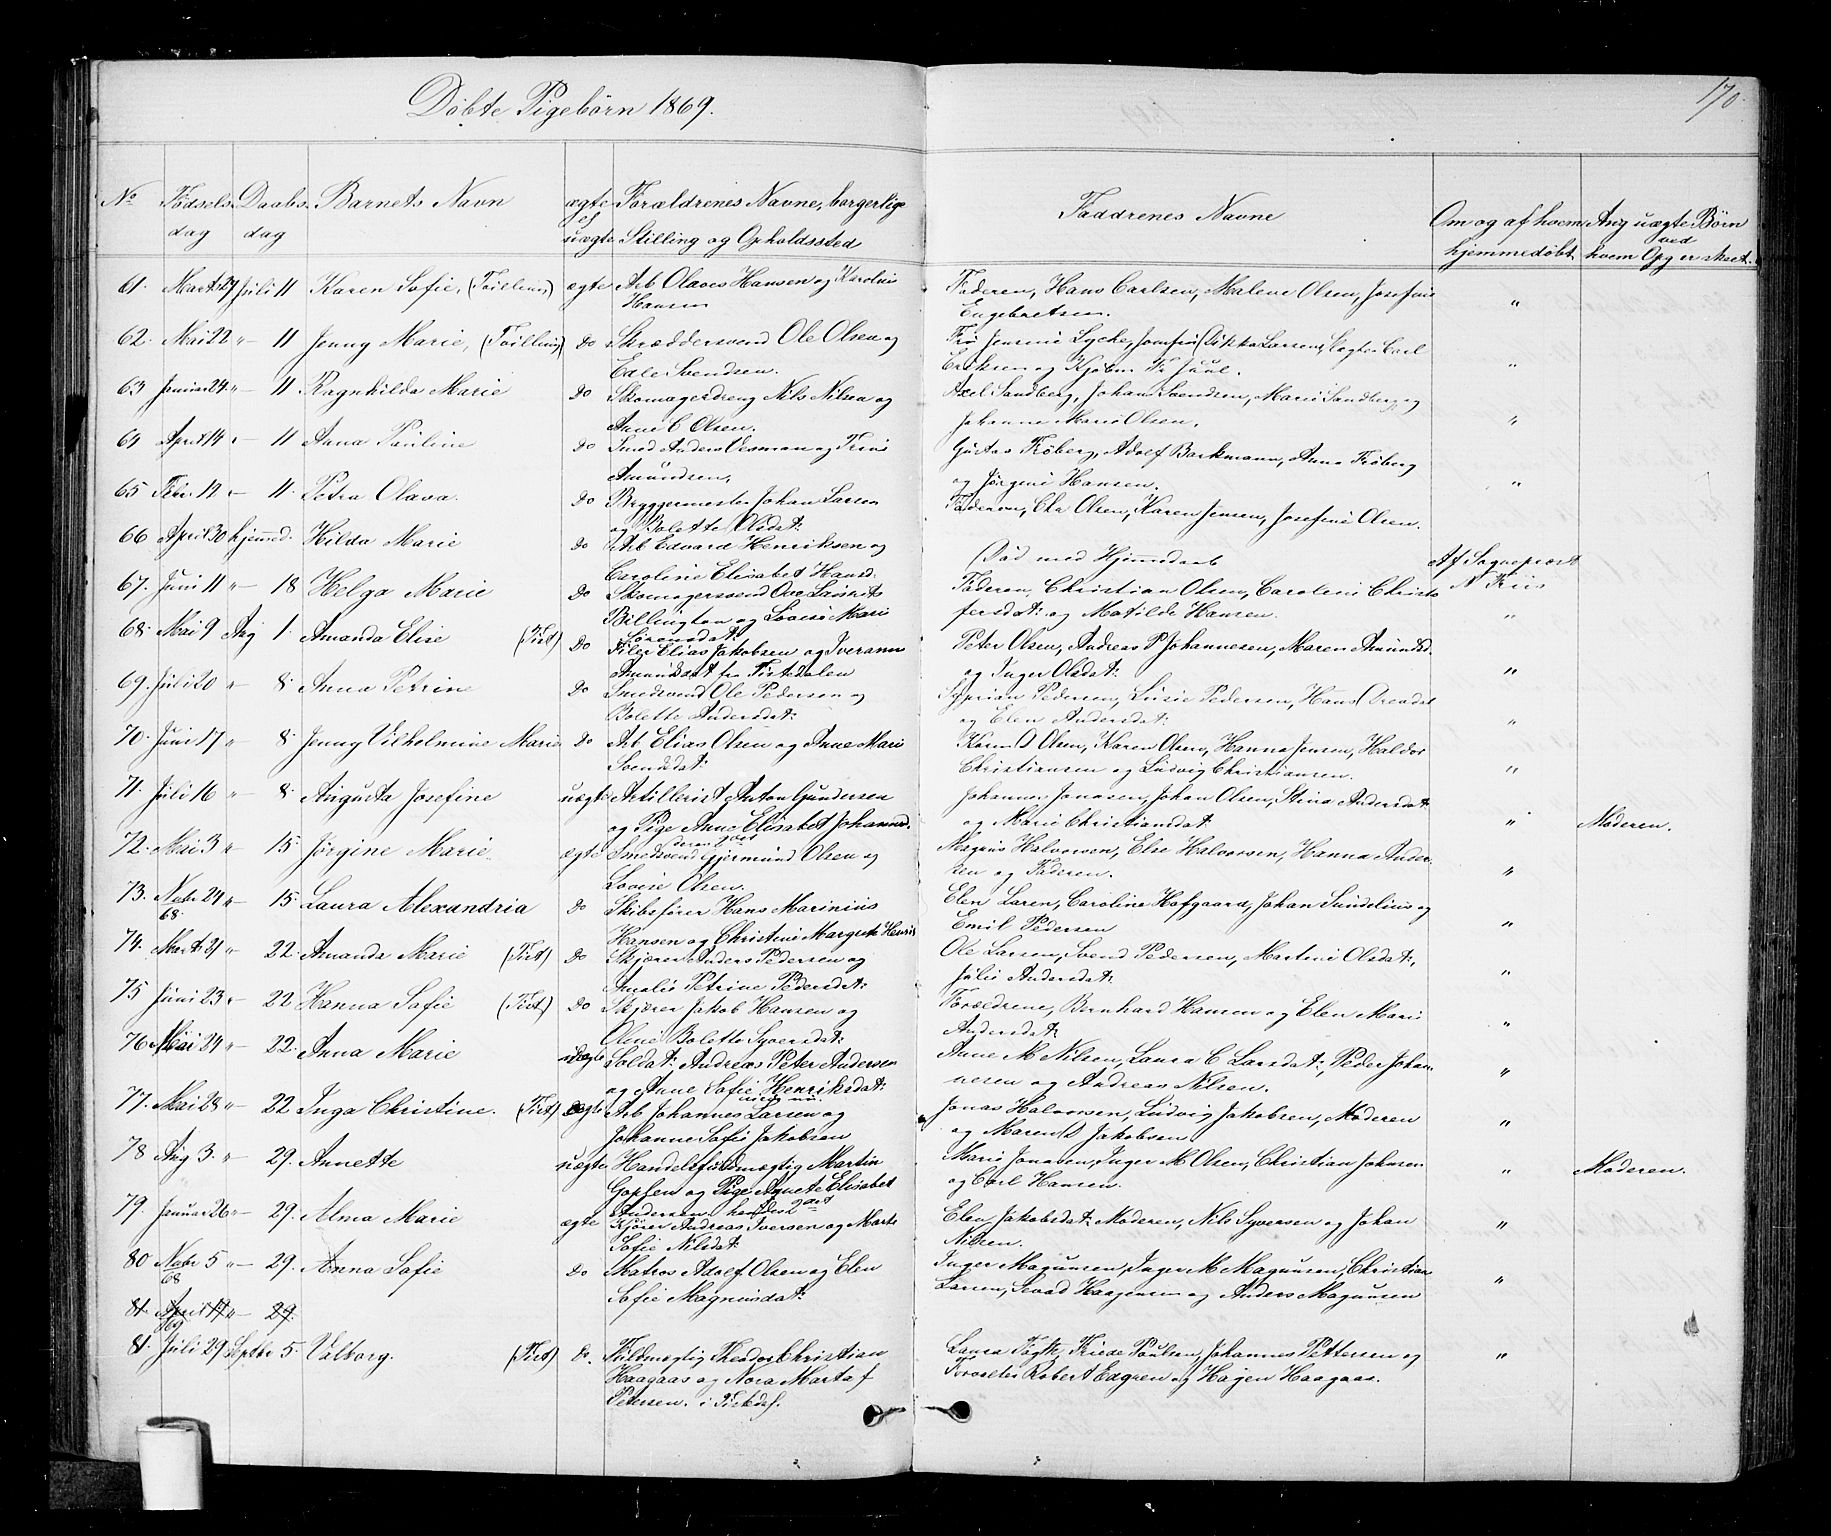 Döbte Pigebörn 1869.
170.
No Fødsels dag Daabs dag Barnets Navn ægte el uægte Forældrenes Navne, borgerlige Stilling og Opholdssted Faddrenes Navne Om og af hvem hjemmedøbt Ang uægte Børn ved hvem Opg er skeet.
61. Marts 27 Juli 11 Karen Sofie, (Tvilling) ægte Arb Olaves Hansen og Karoline
Hansen
Faderen, Hans Carlsen, Malene Olsen, Josefine
Engebretsen. "
62. Mai 22 " 11 Jenny Marie, (Tvilling) Do Skræddersvend Ole Olsen og
Edle Svendsen.
Fru Jensine Lycke, Larsen, Carl
Eriksen og Kjøbm Fr Juul. "
63 Januar 24. " 11 Ragnhilda Marie Do Skomagerdreng Nils Nilsen og
Anne C Olsen.
Axel Sandberg, Johan Svendsen, Marie Sandberg og
Johanne Marie Olsen. "
64 April 14 " 11 Anna Pauline Do Smed Anders Oesman og
Amundsen,
Gustav Fröberg, Adolf Barkmann, Anna Fröberg
og Jörgine Hansen. "
65 Febr 12 " 11. Petra Olava. Do Bryggermester Johan Larsen
og Bolette Olsdat:
Faderen, Chr Olsen, Karen Jensen, Josefine Olsen.
66 April 30 hjemmed. Hilda Marie Do Arb Edvard Henriksen og
Caroline Elisabet Hansd.
Död med Hjemmedaab Af Sognepræst
N Friis
67. Juni 11 " 18 Helga Marie Do Skomagersvend Ole Lauritz
Billington og Lovise Marie
Sörensdat:
Faderen, Christian Olsen, Caroline Christof
fersdat: og Matilde Hansen. "
68. Mai 9 Aug 1. Amanda Elise (Tist) Do Filer Elias Jakobsen og Iveranne
Amundsdat fra Tistedalen
Peter Olsen, Andreas P Johannesen, Maren Amundsd.
og Inger Olsdat: "
69. Juli 20 " 8. Anna Petrine Do Smedsvend Ole Pedersen og
Bolette Andersdat:
Syprian Pedersen, Lusie Pedersen, Hans
og Elen Andersdat: "
70. Juni 17 " 8. Jenny Vilhelmine Marie Do Arb Elias Olsen og Anne Marie
Svendsdat:
Karen S Olsen, Karen Olsen, Hanna Jensen, Haldor
Christiansen og Ludvig Christiansen. "
71. Juli 16 " 8. Augusta Josefine uægte Artillerist Anton Gundersen
og Pige Anne Elisabet Johannsd.
deres 1ste
Johannes Jonasen, Johan Olsen, Stina Andersdat:
og Marie Christiansdat: " Moderen.
72. Mai 3 " 15. Jörgine Marie. ægte Smedsvend Gjermund Olsen og
Lovise Olsen.
Magnus Halvorsen, Else Halvorsen, Hanna Ander-
sen og Faderen. "
73. Nobr 24 68. " 15. Laura Alexandria Do Skibsfører Hans Marinius
Hansen og Christine Margrete Henris
Elen Laren, Caroline Hofgaard, Johan Sundelius og
Emil Pedersen "
74. Mart 21 " 22. Amanda Marie (Tist) Do Skjærer Anders Pedersen og
Amalie Petrine Pedersdat:
Ole Larsen, Svend Pedersen, Martine Olsdat:,
Julie Andersdat: "
75 Juni 23 " 22 Hanna Sofie (Tist) Do Skjærer Jakob Hansen og
Oline Bolette Syversdat:
Forældrene, Bernhard Hansen og Elen Marie
Andersdat: "
76 Mai 24 " 22. Anna Marie Soldat: Andreas Peter Andersen
og Anne Sofie Henriksdat:
Anne M Nilsen, Laura C Larsdat:, Peder Johan-
nesen og Andreas Nilsen. "
77. Mai 28 " 22 Inga Christine. (Tist) ægte Arb Johannes Larsen og
Johanne Sofie Jakobsen
Jonas Halvorsen, Ludvig Jakobsen, Moderen
og Maren D Jakobsen "
78 Aug 3. " 29. Annette uægte Handelsfuldmægtig Martin
Gopfen og Pige Agnete Elisabet
Andersen, hendes 2det
Marie Jonasen, Inger M Olsen, Christian Johnsen
og Carl Hansen. " Moderen.
79. Januar 26 " 29. Alma Marie ægte Kjører Andreas Iversen og Marte
Sofie Nilsdat:
Elen Jakobsdat: Moderen, Nils Syversen og Johan
Nilsen. "
80 Nobr 5 68 " 29. Anna Sofie Do Matros Adolf Olsen og Elen
Sofie Magnusdat:
Inger Magnusen, Inger M Magnusen, Christian
Larsen, Sevad Haagensen og Anders Magnusen "
81. April 19 " 29.
69
81. Juli 29 Septbr 5. Valborg. (Tist) Do. Fuldmægtig Theodor Christian
Haagaas og Nora Marta f
Petersen. i Tistedal.
Laura Fogth, Friede Paulsen, Johannes Pettersen og
Robert Edgren og Hagen Haagaas. "